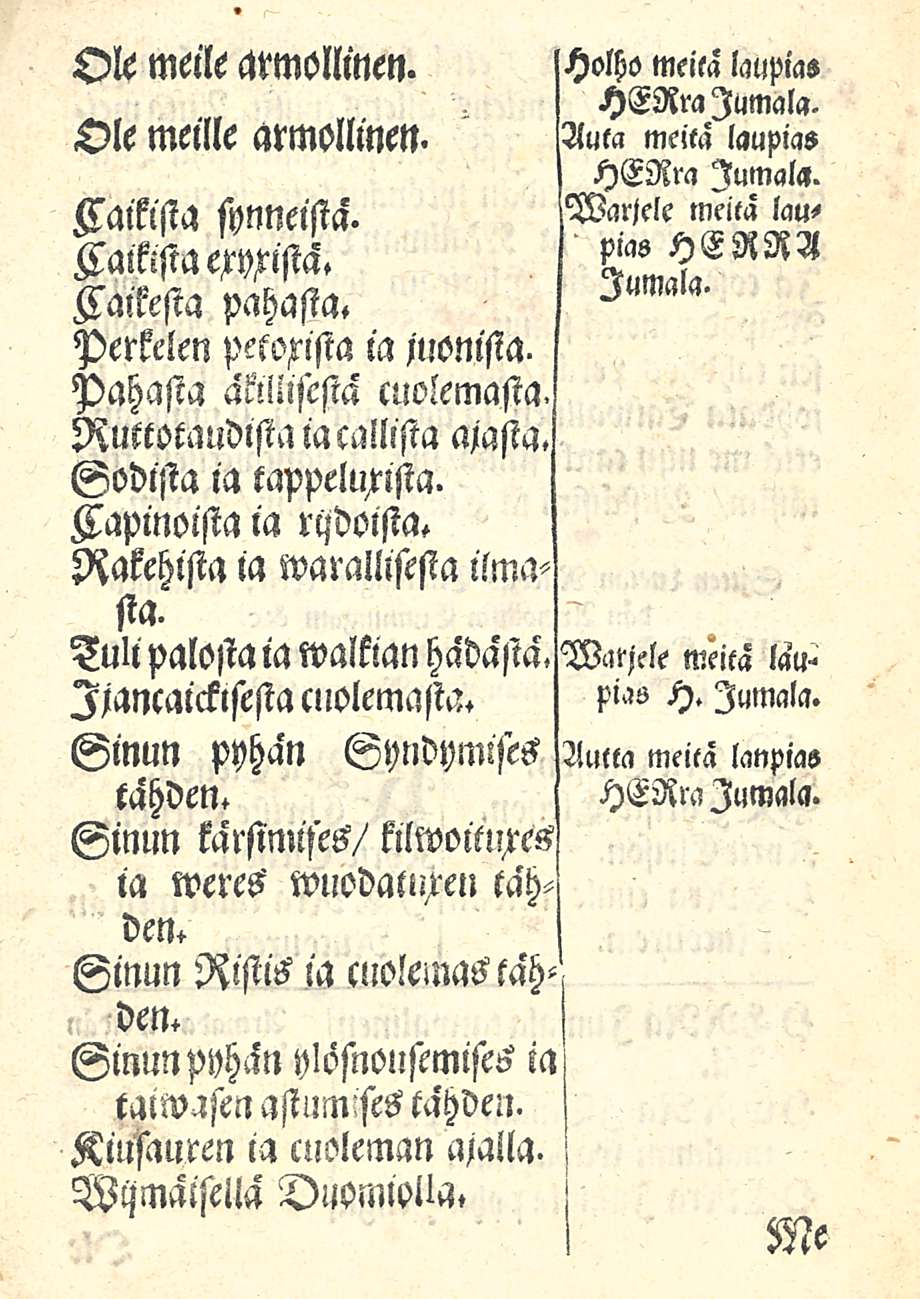 Ole meile armollinen.
Ole meille armollinen.
Caikista synneistä.
Caikista exyxistä.
Caikesta pahasta.
Perkelen petoxista ia juonista.
Pahasta äkillisestä cuolemasta.
Ruttotaudista ia callista ajasta.
Sodista ia tappeluxista.
Capinoista ia rijdoista.
Rakehista ia warallisesta ilma-
sta.
Tuli palosta ia walkian hädästä.
Ijancaickisesta cuolemasta.
Sinun pyhän Syndymises
tähden.
Sinun kärsimises/ kilwoituxes
ia weres wuodatuxen täh-
den.
Sinun Ristis ia cuolemas täh-
den.
Sinun pyhän ylösnousemises ia
taiwasen astumises tähden.
Kiusauxen ia cuoleman ajalla.
Wijmäisellä Duomiolla.
Holho meitä laupias
HERra Jumala.
Auta meitä laupias
HERra Jumala.
Warjele meitä lau-
pias HERRA
Jumala.
Warjele meitä lau-
pias H. Jumala.
Autta meitä laupias
HERra Jumala.
Me